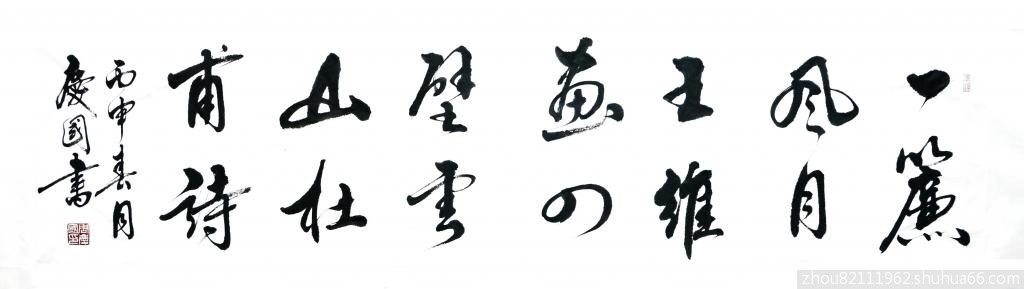 一簾
風月
王維
畫四
壁雲
山杜
甫詩
丙申春月
慶國書
zhou82111962.shuhua66.com